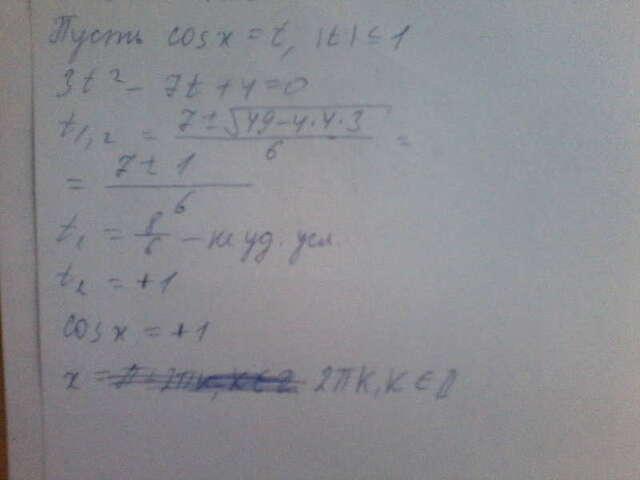 Пусть cosx = t, |t| ≤ 1
3t² - 7t + 4 = 0
t₁,₂ = (7 ± √(49 - 4·4·3))/6 =
= (7 ± 1)/6
t₁ = 8/6 - не уд. усл.
t₂ = +1
cosx = +1
x = 2πk, k ∈ Z